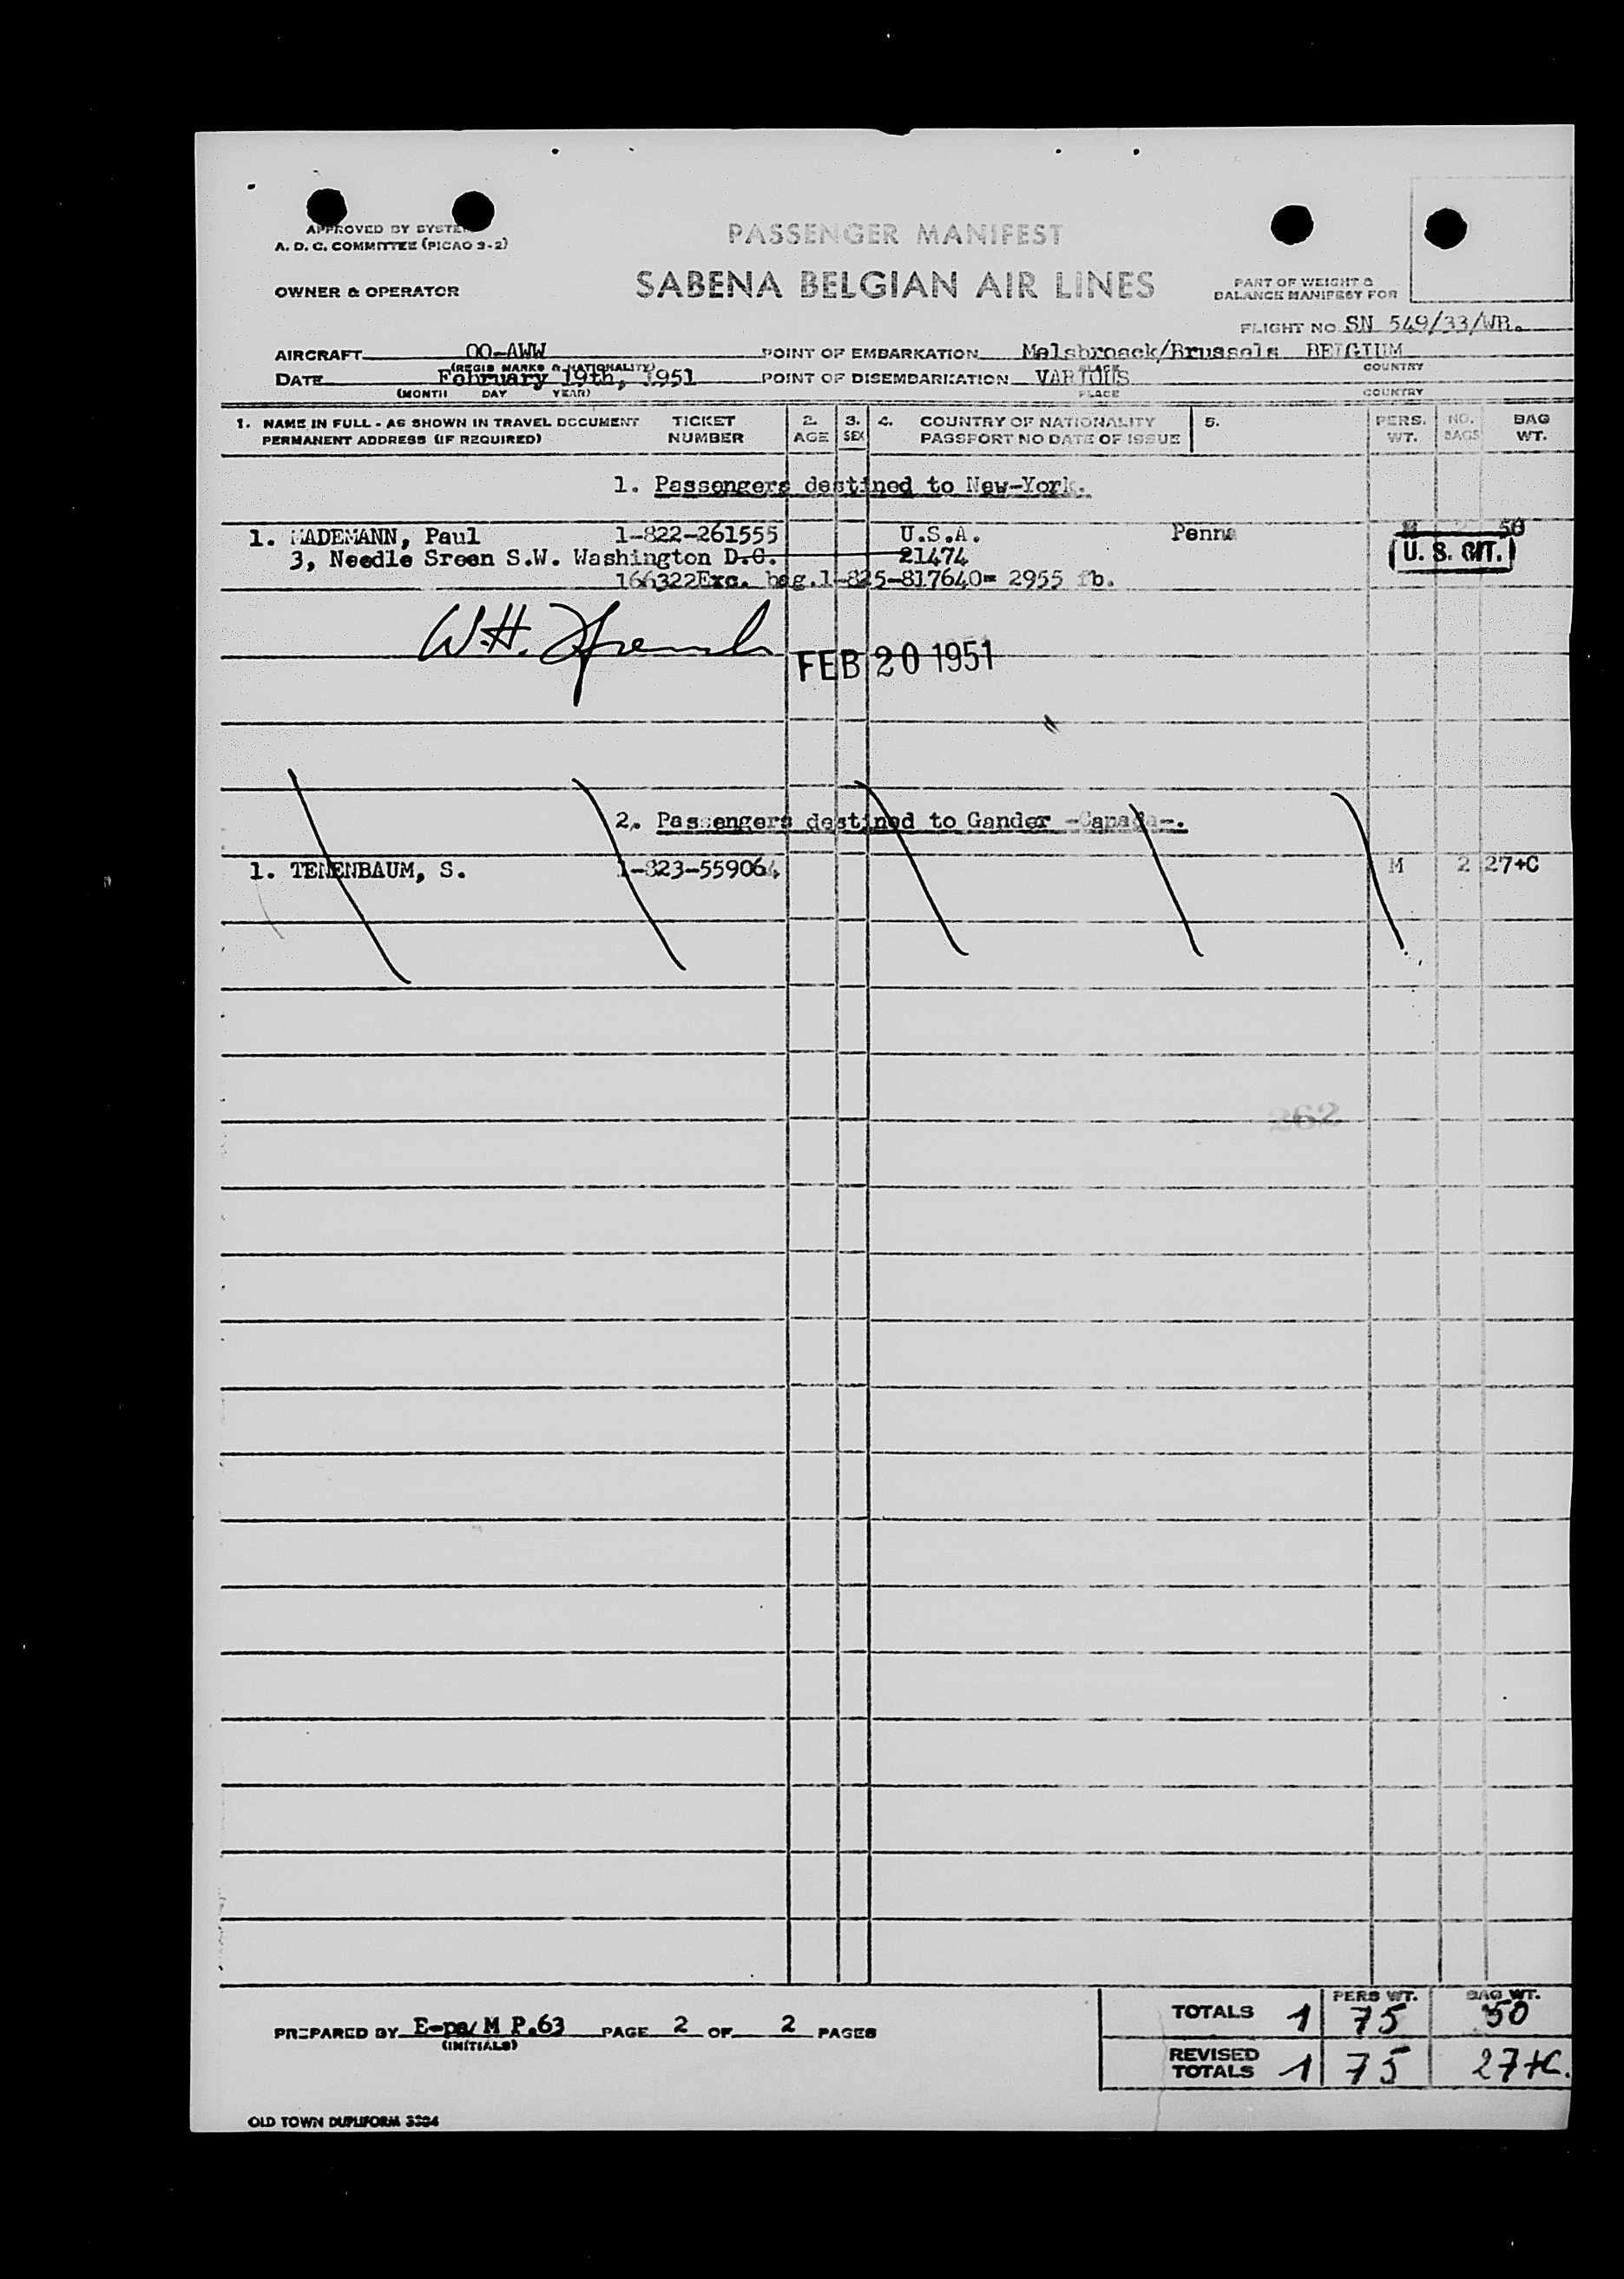 APPROVED BY SYSTEM
A. D. C. COMMITTEE (PICAO 3-2)
OWNER & OPERATOR
PASSENGER MANIFEST
SABENA BELGIAN AIR LINES
PART OF WEIGHT &
BALANCE MANIFEST FOR
FLIGHT NO SN 549/33/WB.
AIRCRAFT OO-AWW POINT OF EMBARKATION Melsbroeck/Brussels BELGIUM
(REGIS MARKS & NATIONALITY) PLACE COUNTRY
DATE February 19th, 1951 POINT OF DISEMBARKATION VARIOUS
(MONTH DAY YEAR) PLACE COUNTRY
1. NAME IN FULL - AS SHOWN IN TRAVEL DOCUMENT TICKET 2. 3. 4. COUNTRY OF NATIONALITY 5. PERS. NO. BAG
PERMANENT ADDRESS (IF REQUIRED) NUMBER AGE SEX PASSPORT NO DATE OF ISSUE WT. BAGS WT.
1. Passengers destined to New-York.
1. MADEMANN, Paul 1-822-261555 U.S.A. Penna M 50
3, Needle Sreen S.W. Washington D.C. 21474 U. S. CIT.
166322Exc. bag.1-825-817640= 2955 fb.
W.H.
FEB 20 1951
2. Passengers destined to Gander -Canada-.
1. TENENBAUM, S. 1-823-559064 M 2 27+C
262
PREPARED BY E-pa/M P.63 PAGE 2 OF 2 PAGES
(INITIALS)
PERS WT. BAG WT.
TOTALS 1 75 50
REVISED
TOTALS 1 75 27+C.
OLD TOWN DUPLIFORM 3304